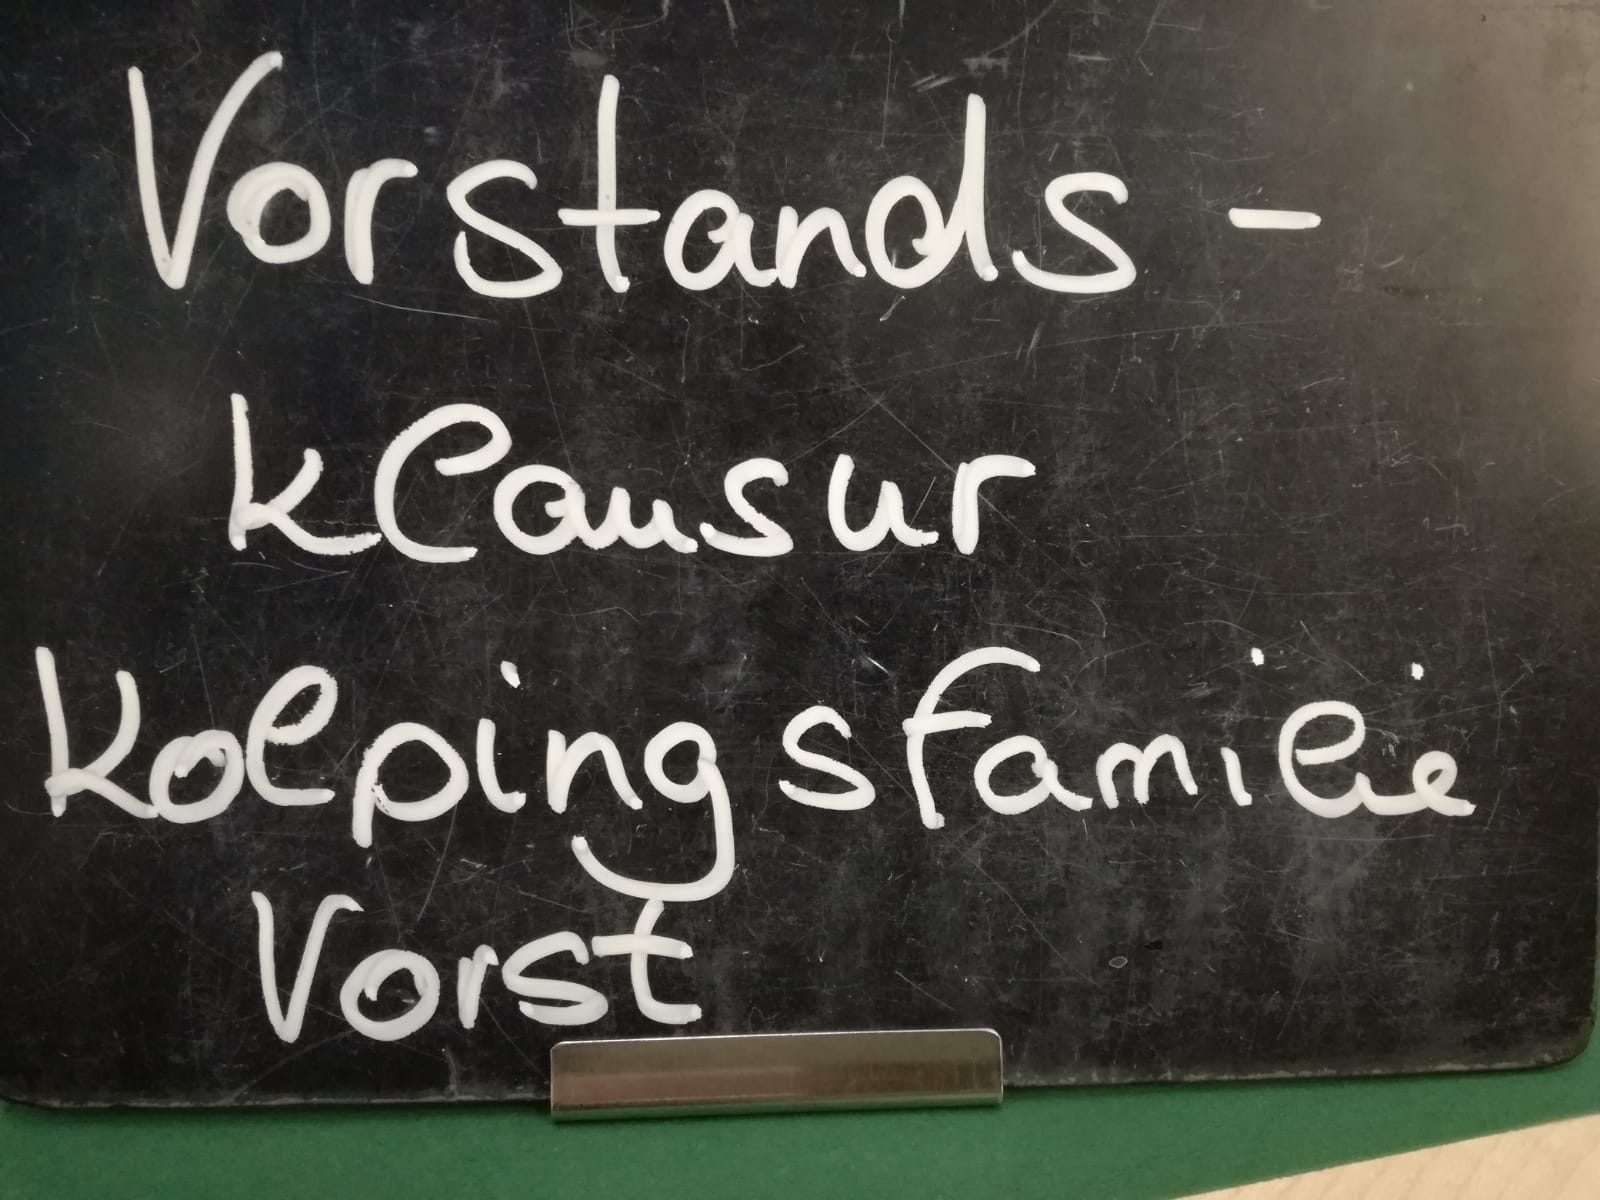 Vorstands-
klausur
Kolpingsfamilie
Vorst